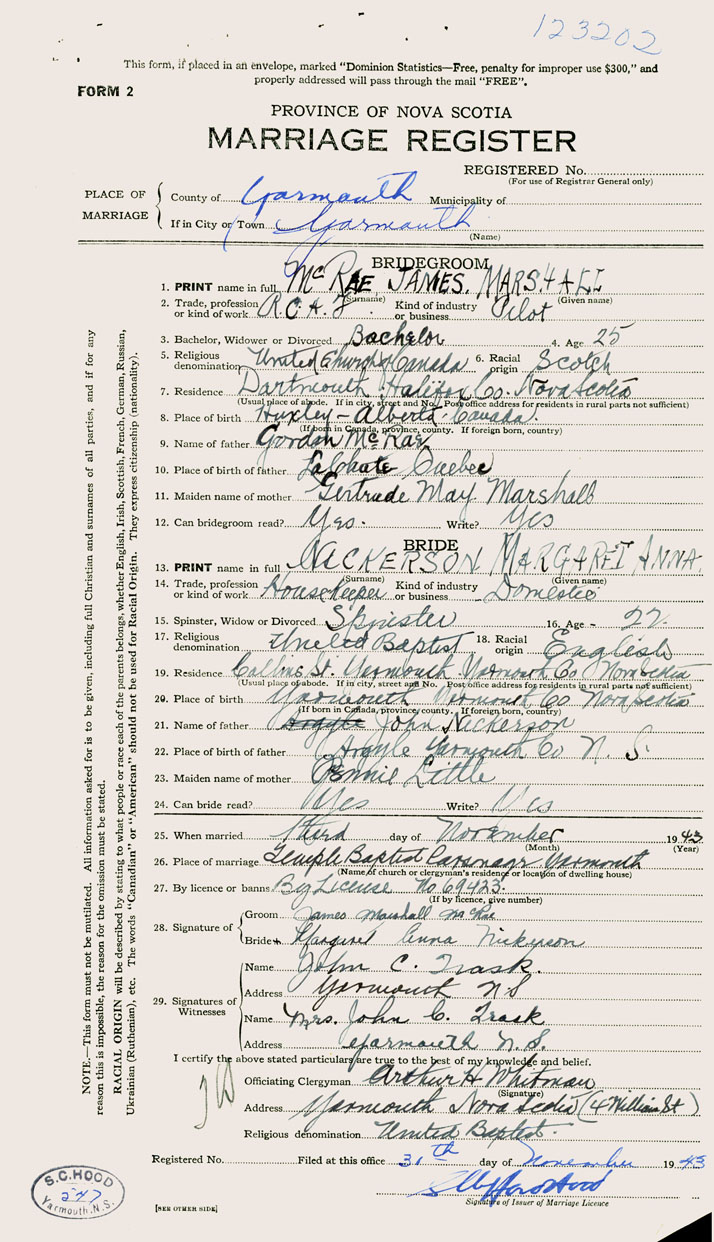 123202
This form, if placed in an envelope, marked "Dominion Statistics—Free, penalty for improper use $300," and
properly addressed will pass through the mail "FREE".
FORM 2
PROVINCE OF NOVA SCOTIA
MARRIAGE REGISTER
REGISTERED No.
(For use of Registrar General only)
PLACE OF MARRIAGE
County of Yarmouth Municipality of
If in City or Town Yarmouth
(Name)
BRIDEGROOM
1. PRINT name in full McRAE JAMES. MARSHALL
(Surname) (Given name)
2. Trade, profession or kind of work R.C.A.F Kind of industry or business Pilot
3. Bachelor, Widower or Divorced Bachelor 4. Age 25
5. Religious denomination United Church of Canada 6. Racial origin Scotch
7. Residence Dartmouth Halifax Co. Nova Scotia
(Usual place of abode. If in city, street and No. Post office address for residents in rural parts not sufficient)
8. Place of birth Huxley - Alberta - Canada.
(If born in Canada, province, county. If foreign born, country)
9. Name of father Gordon McRae
10. Place of birth of father LaChute Quebec
11. Maiden name of mother Gertrude May Marshall
12. Can bridegroom read? Yes. Write? Yes
BRIDE
13. PRINT name in full NICKERSON MARGARET ANNA.
(Surname) (Given name)
14. Trade, profession or kind of work Housekeeper Kind of industry or business Domestic
15. Spinster, Widow or Divorced Spinster 16. Age - 22.
17. Religious denomination United Baptist 18. Racial origin English
19. Residence Collins St. Yarmouth Yarmouth Co Nova Scotia
(Usual place of abode. If in city, street and No. Post office address for residents in rural parts not sufficient)
20. Place of birth Yarmouth Yarmouth Co Nova Scotia
(If born in Canada, province, county. If foreign born, country)
21. Name of father Argyle John Nickerson
22. Place of birth of father Argyle Yarmouth Co N. S.
23. Maiden name of mother Little
24. Can bride read? Yes Write? Yes
25. When married third day of November 1943
(Month) (Year)
26. Place of marriage Temple Baptist Parsonage Yarmouth
(Name of church or clergyman's residence or location of dwelling house)
27. By licence or banns By License No 69423.
(If by licence, give number)
28. Signature of
Groom James Marshall McRae
Bride Margaret Anna Nickerson
29. Signatures of Witnesses
Name John C. Trask.
Address Yarmouth N S
Name Mrs. John C. Trask
Address Yarmouth N. S.
I certify the above stated particulars are true to the best of my knowledge and belief.
Officiating Clergyman Arthur H Whitman
(Signature)
Address Yarmouth Nova Scotia (4 William St)
Religious denomination United Baptist.
Registered No. Filed at this office 30th day of November 1943
Signature of Issuer of Marriage Licence
[SEE OTHER SIDE]
S. C. HOOD
247
Yarmouth, N.S.
NOTE.—This form must not be mutilated. All information asked for is to be given, including full Christian and surnames of all parties, and if for any
reason this is impossible, the reason for the omission must be stated.
RACIAL ORIGIN will be described by stating to what people or race each of the parents belongs, whether English, Irish, Scottish, French, German, Russian,
Ukrainian (Ruthenian), etc. The words "Canadian" or "American" should not be used for Racial Origin. They express citizenship (nationality).